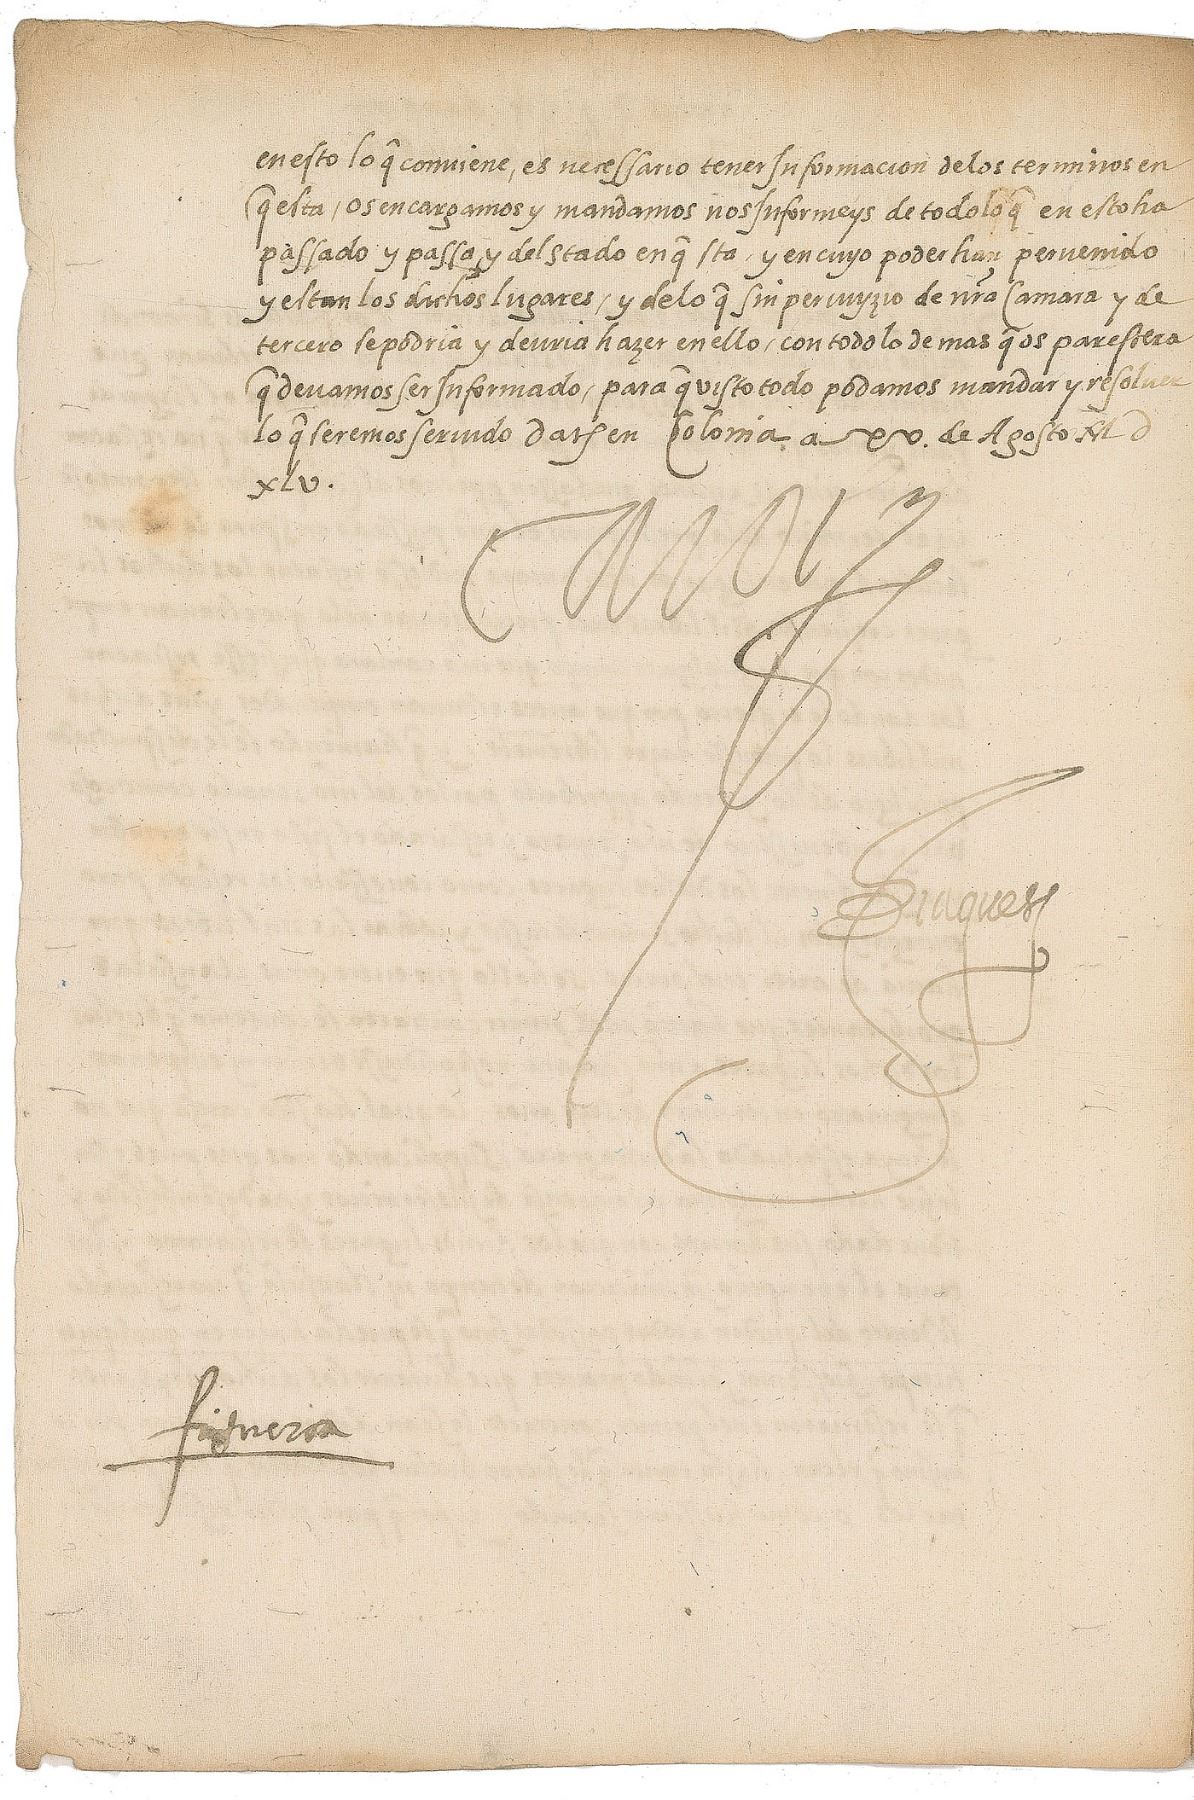 en esto lo q̃ conuiene, es necessario tener Informacion de los terminos en
q̃ esta / os encargamos y mandamos nos Informeys de todo lo q̃ en esto ha
passado y passa, y del stado en q̃ sta, y en cuyo poder han peruenido
y estan los dichos lugares, y de lo q̃ sin periuyzio de nr̃a Camara y de
tercero se podria y deuria hazer en ello, con todo lo demas q̃ os paresçera
q̃ deuamos ser Informado, para q̃ visto todo podamos mandar y resoluer
lo q̃ seremos seruido Dat en Colonia a xv. de Agosto M D
xlv.
Vaguer
figueroa